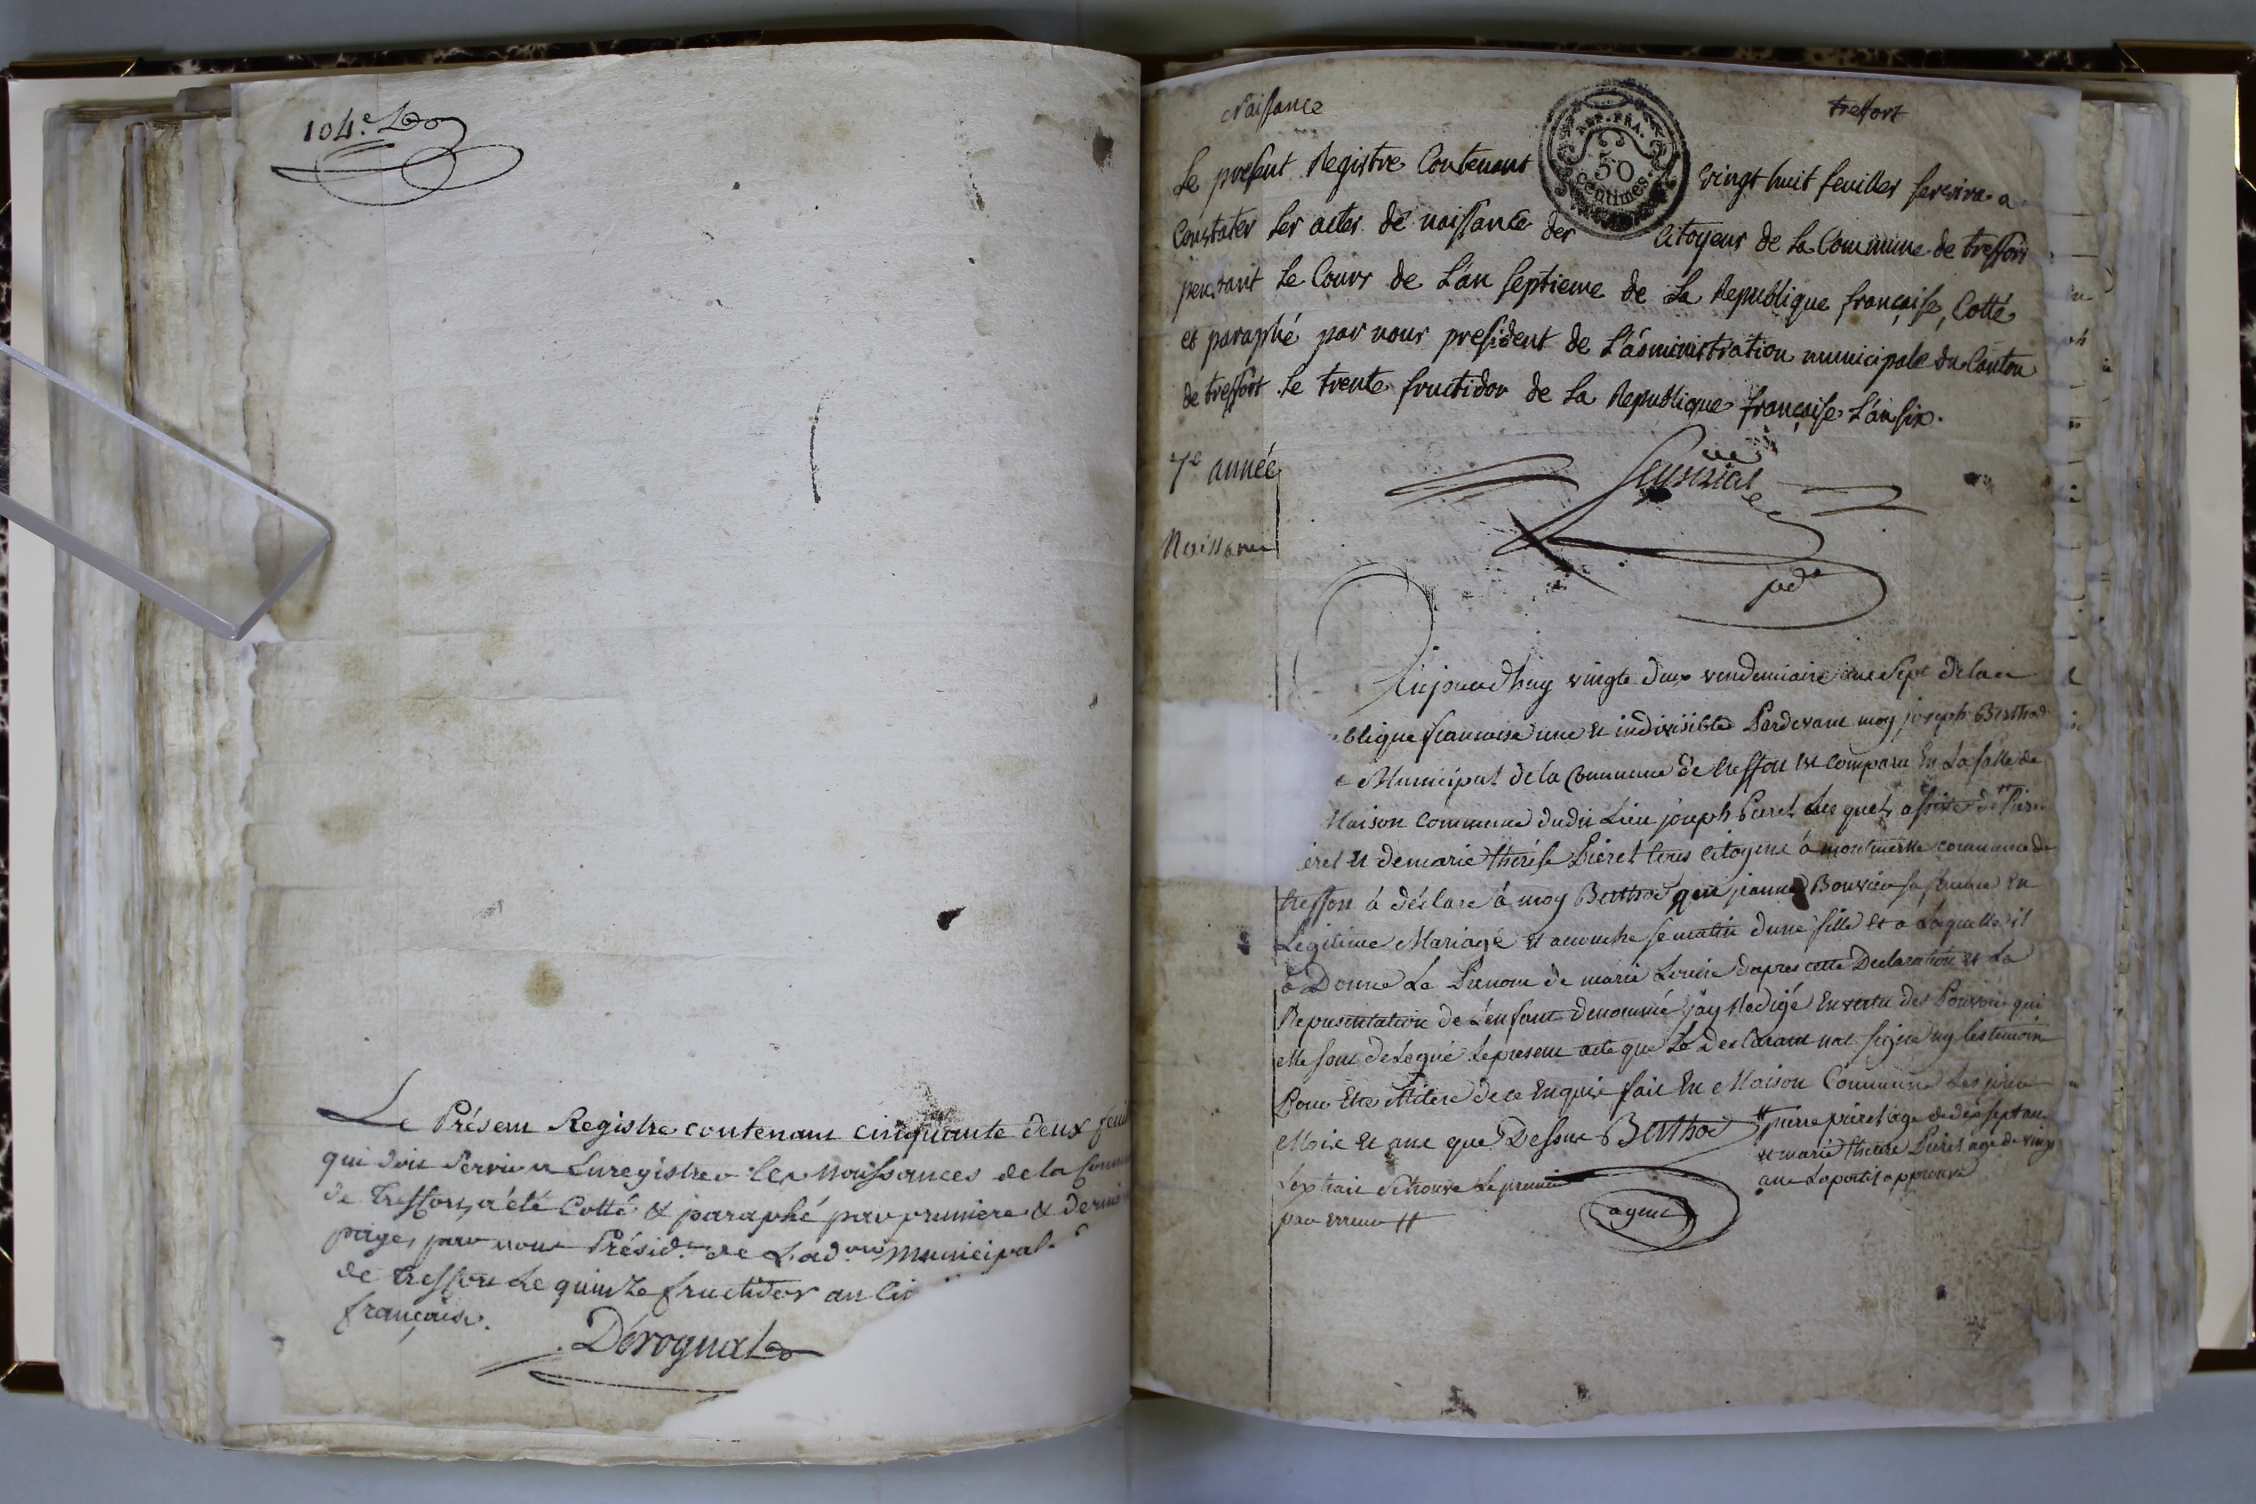 104.e
Le Présent Registre contenant cinquante deux feui
qui doit servir a Enregistrer les Naissances de la Comm
de treffort, a été Cotté & paraphé par premiere & derni
page, par nous Présid.t de L'ad.on Municipal
de treffort le quinze fructidor an
française.
Dérognat
Naissance
treffort
REP. FRA.
50
centimes.
Le present Registre Contenant vingt huit feuilles servira a
Constater les actes de naissance des Citoyens de la Commune de treffort
pendant le Cours de L'an septieme de la Republique française, Cotté
et paraphé par nous president de L'administration municipale du Canton
de treffort le trente fructidor de la Republique française L'an six.
7e année
Naissance
pdt
Aujourd'huy vingte deux vendemiaire ane Sept de la re
blique francaise une et indivisible Pardevant moy joseph Berthod
Municipal de la Commune de treffort est comparu En La salle de
Maison Commune dudit Lieu joseph Pieret Lequel assisté de Pierre
ieret et de marie therése Pieret tous citoyens à montmerle commune de
treffort à déclare à moy Berthod que jeanne Bouvier sa femme En
Legitime Mariage et acouche se matin d'une fille et a Laquelle il
à Donne Le Prenom de marie Louise d'apres cette Declaration et La
Representation de L'enfant denommé j'ay Redigé En vertu des Pouvoir qui
me sont delegué Le present acte que Le declarant na signe ny les temoin
Pour Etre illitere de ce Enquis fait En Maison Commune Les jour
Mois et ane que Dessus Berthod
# pierre pieret age de dix sept ans
et marie therese Pieret age de vingt
ans L'apostil approuve
L'extrait se trouve Le premier
par erreur #
agent